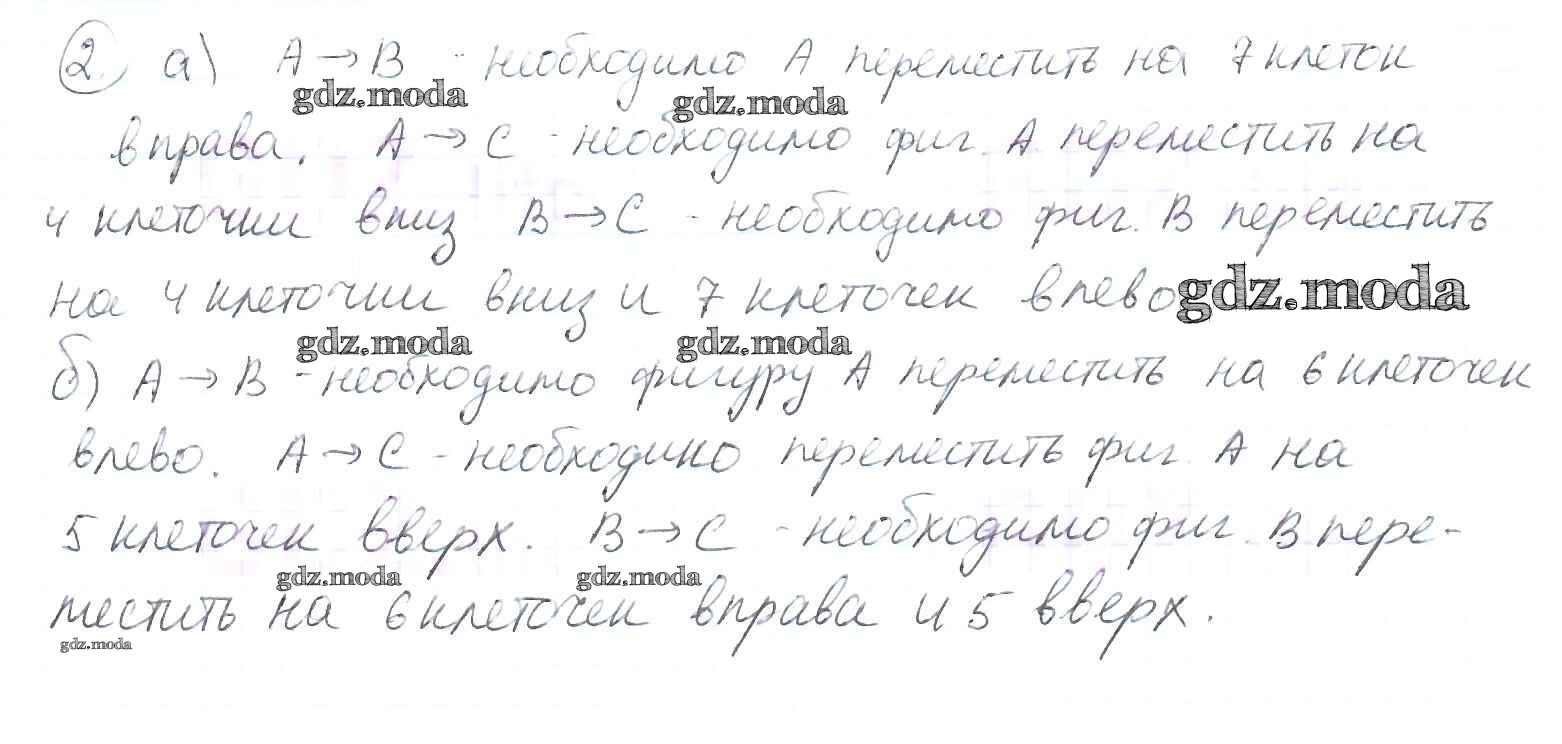 2. а) А → В - необходимо А переместить на 7 клеток
gdz.moda gdz.moda
вправа. А → С - необходимо фиг. А переместить на
4 клеточки вниз В → С - необходимо фиг. В переместить
на 4 клеточки вниз и 7 клеточек влево gdz.moda
gdz.moda gdz.moda
б) А → В - необходимо фигуру А переместить на 6 клеточек
влево. А → С - необходимо переместить фиг. А на
5 клеточек вверх. В → С - необходимо фиг. В пере-
gdz.moda gdz.moda
местить на 6 клеточек вправа и 5 вверх.
gdz.moda